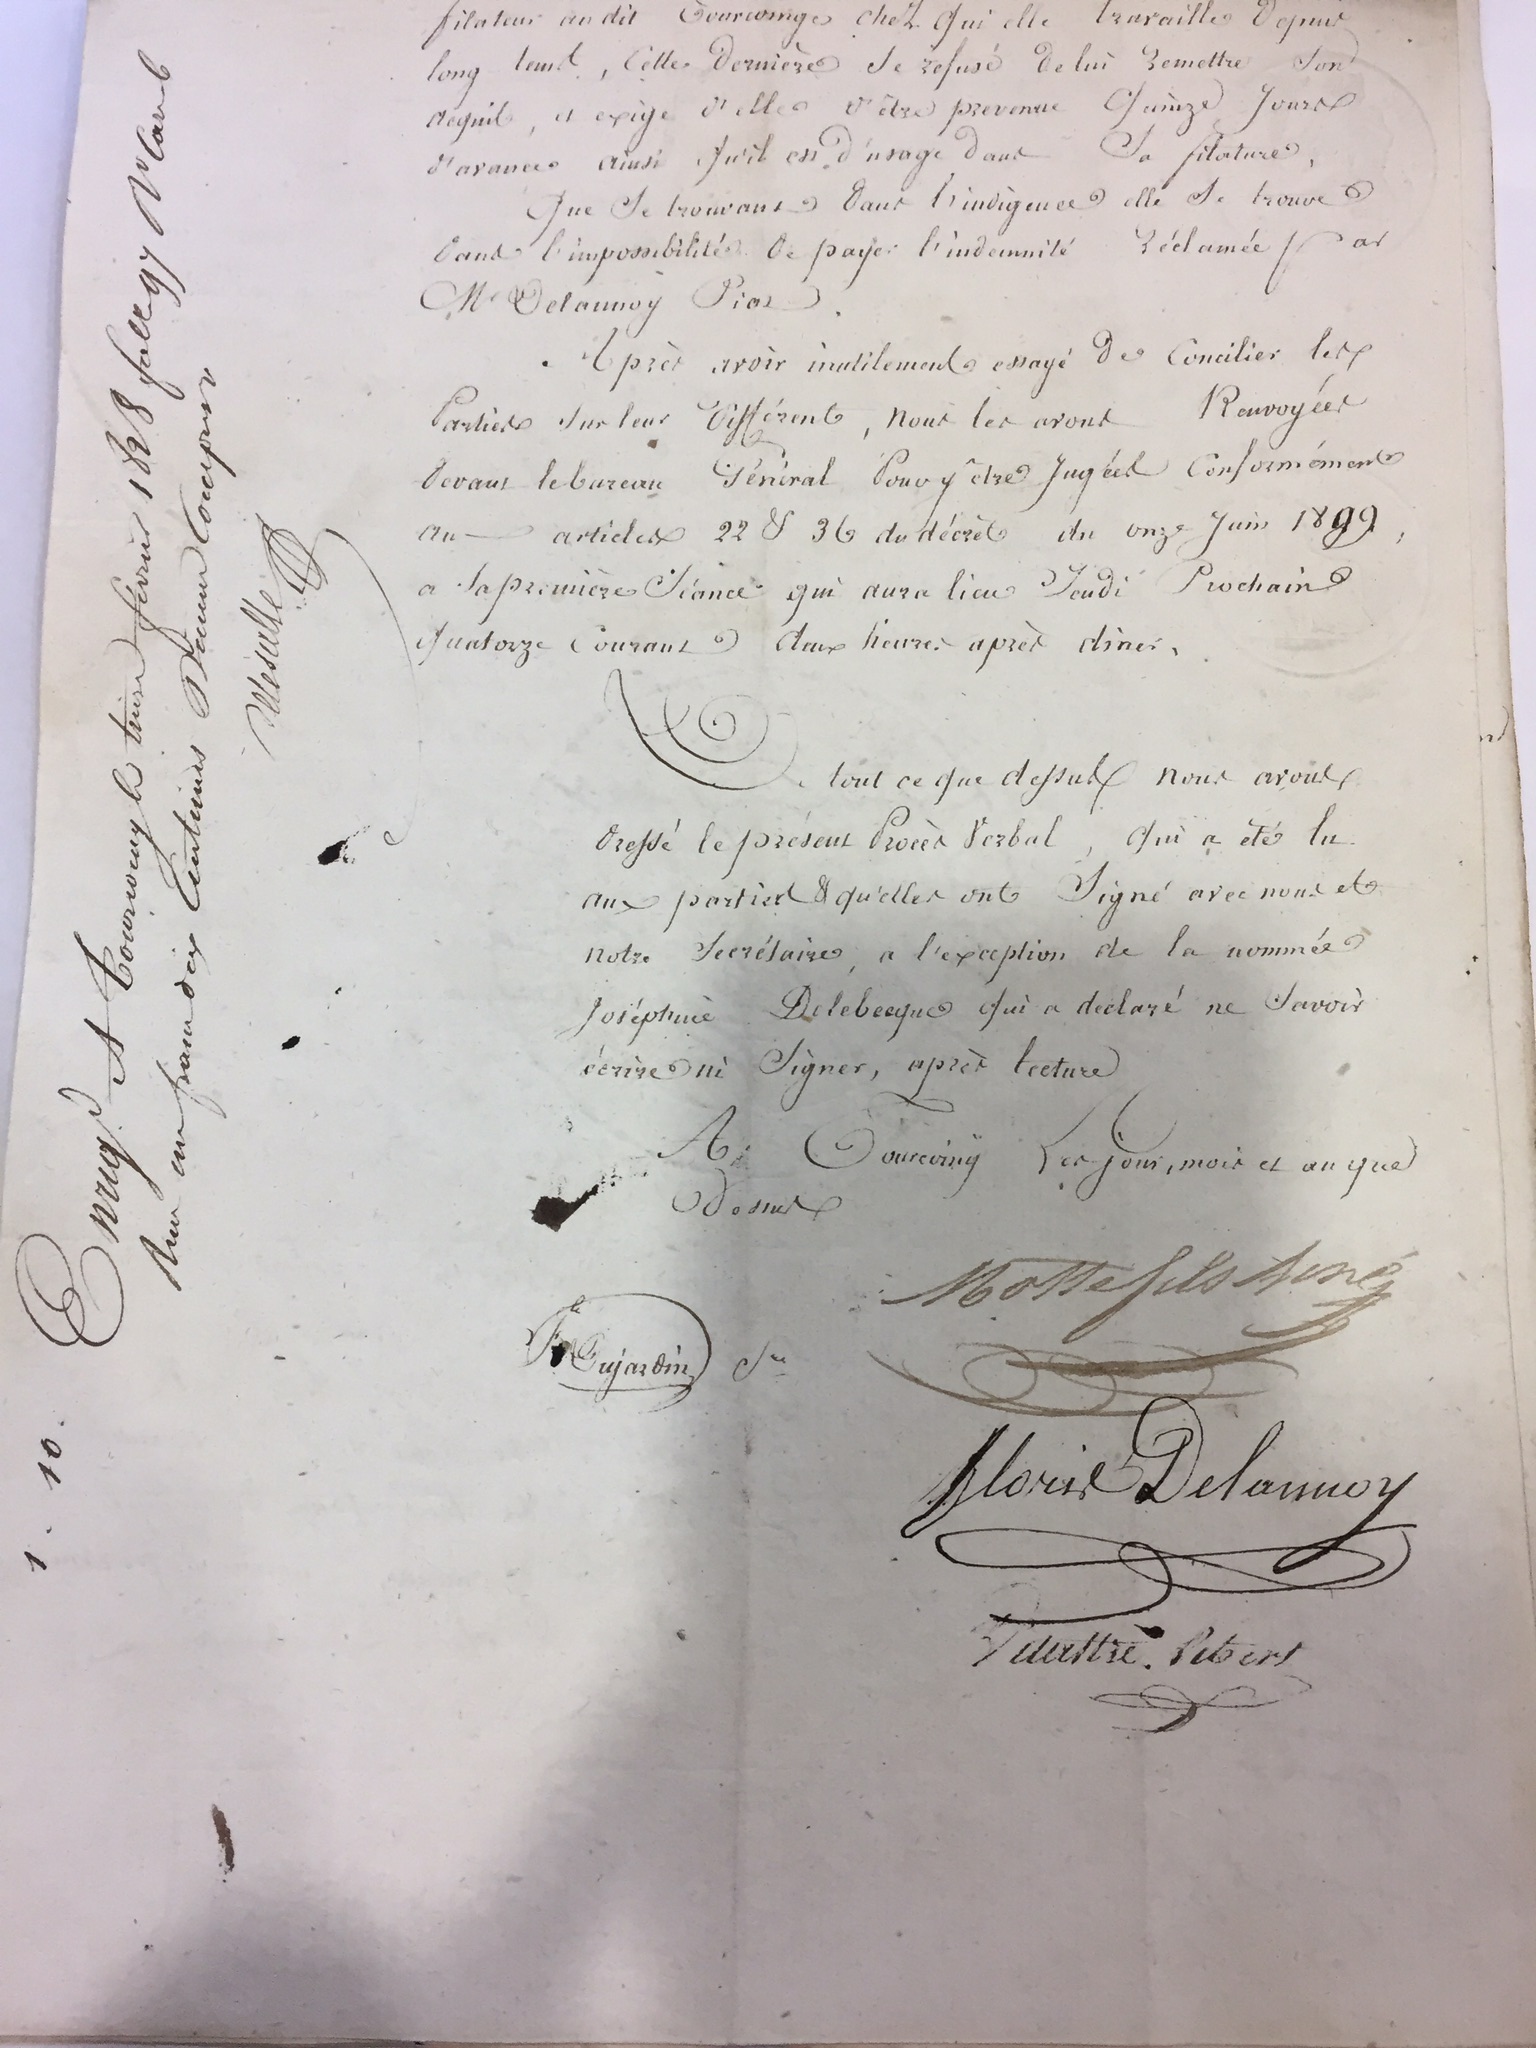 filateur au dit Tourcoing chez qui elle travaille depuis
long tems, Cette dernière se refuse de lui remettre son
acquit, et exige d'elle d'être prevenue Quinze Jours
d'avance ainsi qu'il est d'usage dans Sa filature,
Que Se trouvant dans l'indigence elle Se trouve
dans l'impossibilité de payer l'indemnité réclamée par
Mr Delannoy Piat.
Après avoir inutilement essayé de Concilier les
Parties sur leur différent, nous les avons Renvoyées
devant le bureau Général Pour y être Jugées Conformément
au articles 22 & 36 du décret du onze Juin 1809,
a sa première Séance qui aura lieu Jeudi Prochain
quatorze Courant deux heures après diner.
De tout ce que dessus nous avons
dressé le présent Procès Verbal, qui a été lu
aux parties & qu'elles ont Signé avec nous et
notre Secrétaire, a l'exception de la nommée
Joséphine Delebecque qui a declaré ne Savoir
écrire ni Signer, après lecture
A Tourcoing Les jour, mois et an que
Dessus
Motte fils Ainé
Fs Dujardin Sre
Floris Delannoy
1. 10.
Enregé A Tourcoing le treize février 1828 folio 97
un franc dix Centimes